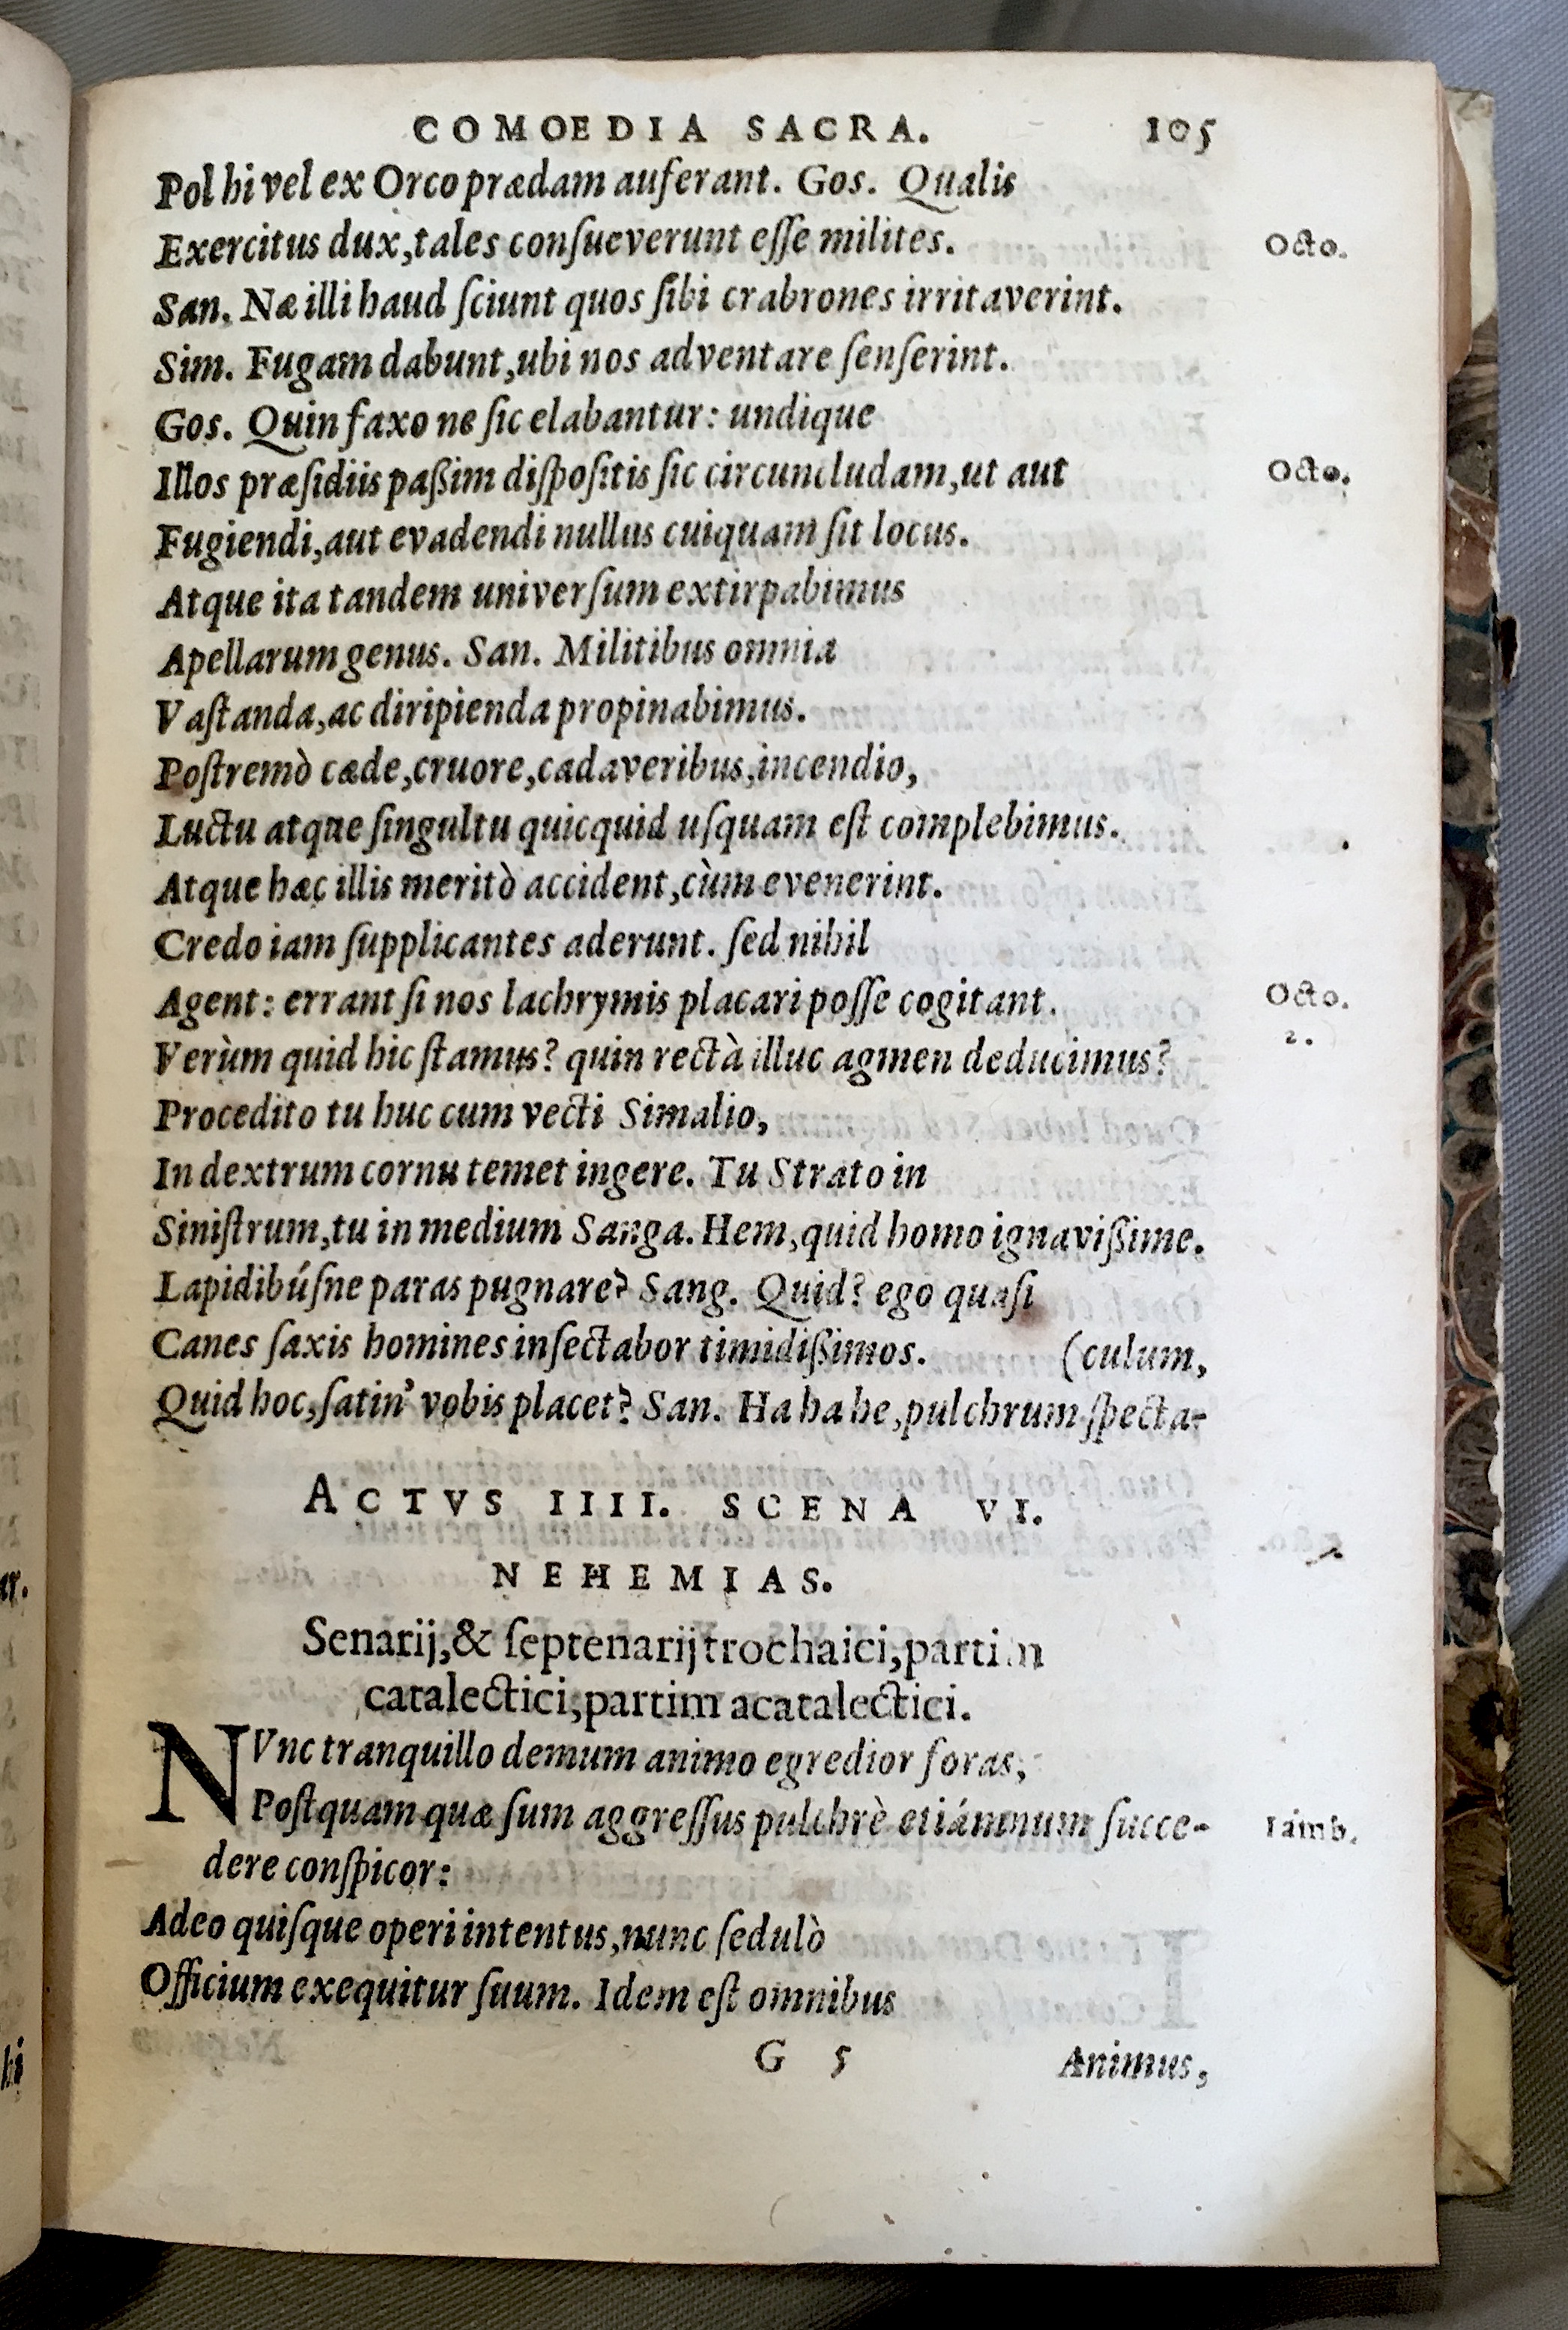 COMOEDIA SACRA. 105
Pol hi vel ex Orco prædam auferant. Gos. Qualis
Exercitus dux, tales conſueverunt eſſe milites. Octo.
San. Næ illi haud ſciunt quos ſibi crabrones irritaverint.
Sim. Fugam dabunt, ubi nos adventare ſenſerint.
Gos. Quin faxo ne ſic elabantur: undique
Illos præſidiis paßim diſpoſitis ſic circuncludam, ut aut Octo.
Fugiendi, aut evadendi nullus cuiquam ſit locus.
Atque ita tandem univerſum extirpabimus
Apellarum genus. San. Militibus omnia
Vaſtanda, ac diripienda propinabimus.
Poſtremò cæde, cruore, cadaveribus, incendio,
Luctu atque ſingultu quicquid uſquam eſt complebimus.
Atque hæc illis meritò accident, cùm evenerint.
Credo iam ſupplicantes aderunt. ſed nihil
Agent: errant ſi nos lachrymis placari poſſe cogitant. Octo.
2.
Verùm quid hic ſtamus? quin rectà illuc agmen deducimus?
Procedito tu huc cum vecti Simalio,
In dextrum cornu temet ingere. Tu Strato in
Siniſtrum, tu in medium Sanga. Hem, quid homo ignavißime.
Lapidibúſne paras pugnare? Sang. Quid? ego quaſi
Canes ſaxis homines inſectabor timidißimos. (culum,
Quid hoc, ſatin' vobis placet? San. Ha ha he, pulchrum ſpecta-
ACTVS IIII. SCENA VI.
NEHEMIAS.
Senarij, & ſeptenarij trochaici, partim
catalectici, partim acatalectici.
NVnc tranquillo demum animo egredior foras,
Poſtquam quæ ſum aggreſſus pulchrè etiámnum ſucce- Iamb.
dere conſpicor:
Adeo quiſque operi intentus, nunc ſedulò
Officium exequitur ſuum. Idem eſt omnibus
G 5 Animus,